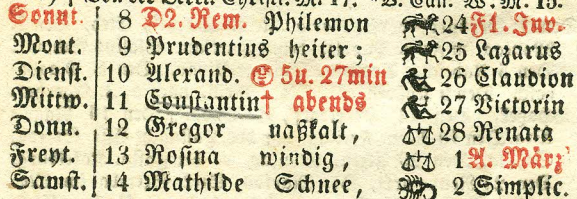 Sonnt. 8 D2. Rem. Philemon 24 F1. Inv.
Mont. 9 Prudentius heiter; 25 Lazarus
Dienst. 10 Alexand. 5u. 27min 26 Claudion
Mittw. 11 Constantin† abends 27 Victorin
Donn. 12 Gregor naßkalt, 28 Renata
Freyt. 13 Rosina windig, 1 A. März
Samst. 14 Mathilde Schnee, 2 Simplic.